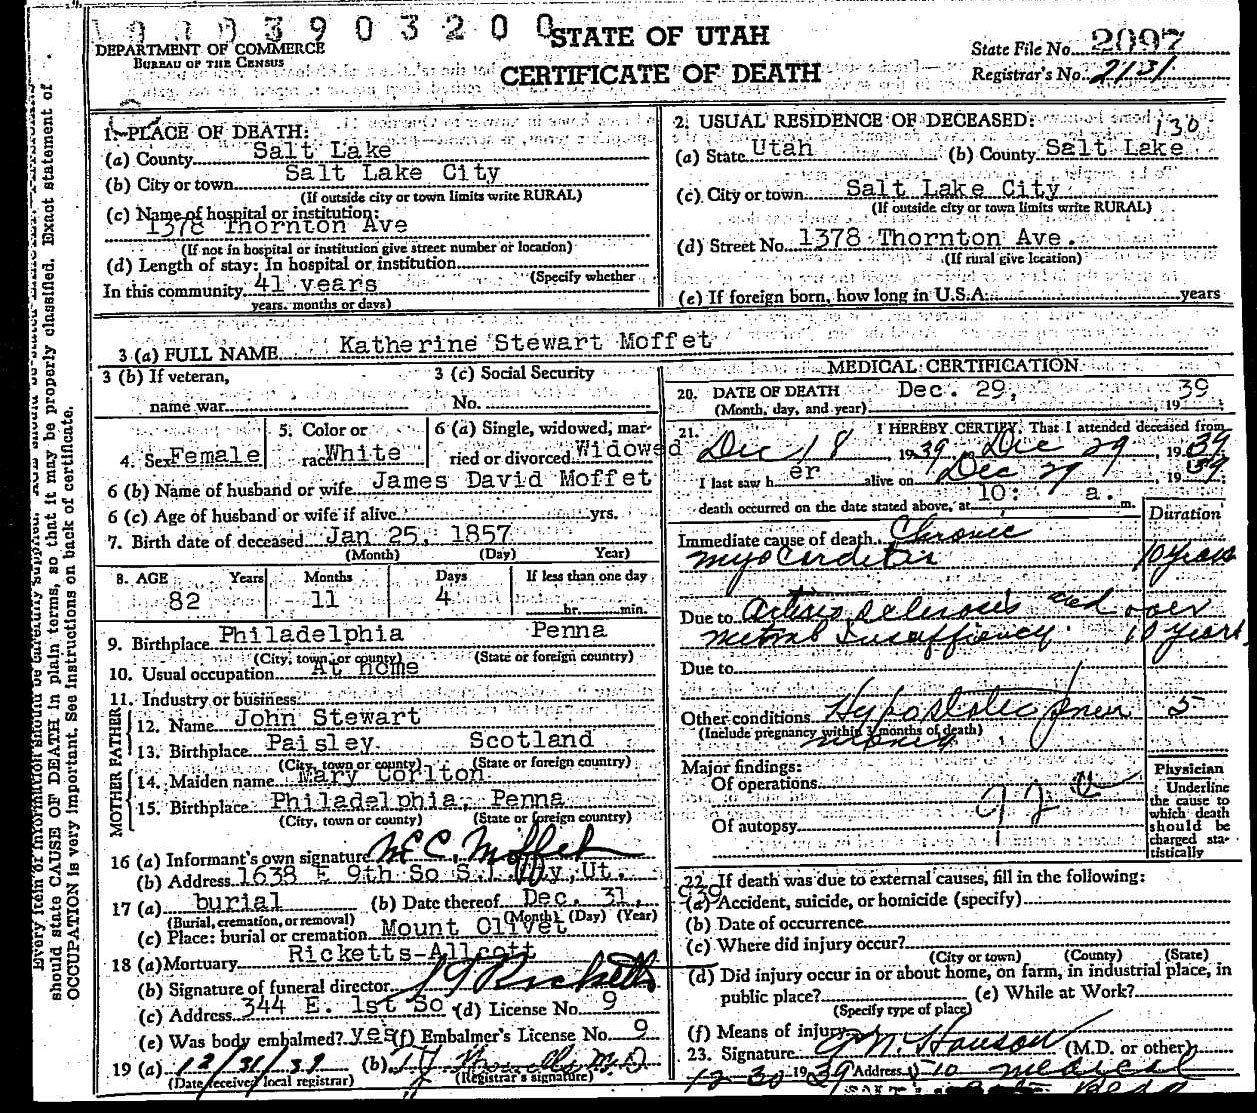 0003903200
DEPARTMENT OF COMMERCE
BUREAU OF THE CENSUS
STATE OF UTAH
CERTIFICATE OF DEATH
State File No. 2097
Registrar's No. 2131
1. PLACE OF DEATH:
(a) County Salt Lake
(b) City or town Salt Lake City
(If outside city or town limits write RURAL)
(c) Name of hospital or institution:
1378 Thornton Ave
(If not in hospital or institution give street number or location)
(d) Length of stay: In hospital or institution
(Specify whether
In this community 41 years
years, months or days)
2. USUAL RESIDENCE OF DECEASED:
130
(a) State Utah (b) County Salt Lake
(c) City or town Salt Lake City
(If outside city or town limits write RURAL)
(d) Street No. 1378 Thornton Ave.
(If rural give location)
(e) If foreign born, how long in U.S.A. years
3 (a) FULL NAME Katherine Stewart Moffet
3 (b) If veteran,
name war
3 (c) Social Security
No.
4. Sex Female
5. Color or
race White
6 (a) Single, widowed, mar-
ried or divorced Widowed
6 (b) Name of husband or wife James David Moffet
6 (c) Age of husband or wife if alive yrs.
7. Birth date of deceased Jan 25, 1857
(Month) (Day) Year)
8. AGE Years Months Days If less than one day
82 11 4 hr. min.
9. Birthplace Philadelphia Penna
(City, town, or county) (State or foreign country)
10. Usual occupation At home
11. Industry or business
FATHER
12. Name John Stewart
13. Birthplace Paisley Scotland
(City, town or county) (State or foreign country)
MOTHER
14. Maiden name Mary Corlton
15. Birthplace Philadelphia, Penna
(City, town or county) (State or foreign country)
16 (a) Informant's own signature Moffet
(b) Address 1638 E 9th So S.L City, Ut.
17 (a) burial (b) Date thereof Dec. 31, 939
(Burial, cremation, or removal) (Month) (Day) (Year)
(c) Place: burial or cremation Mount Olivet
18 (a) Mortuary Ricketts-Allcott
(b) Signature of funeral director Ricketts
(c) Address 344 E. 1st So (d) License No. 9
(e) Was body embalmed? yes (f) Embalmer's License No. 9
19 (a) 12/31/39 (b) M.D.
(Date received local registrar) (Registrar's signature)
MEDICAL CERTIFICATION
20. DATE OF DEATH Dec. 29, 1939
(Month, day, and year)
21. I HEREBY CERTIFY, That I attended deceased from
Dec 18, 1939 to Dec 29, 1939
I last saw her alive on Dec 29, 1939
death occurred on the date stated above, at 10: a. m.
Duration
Immediate cause of death Chronic
myocarditis 10 years
Due to Arteriosclerosis and over
mitral Insufficiency 10 years
Due to
Other conditions Hypostatic pneu 5
(Include pregnancy within 3 months of death)
monia
Major findings:
Of operations
Of autopsy
Physician
Underline
the cause to
which death
should be
charged sta-
tistically
22. If death was due to external causes, fill in the following:
(a) Accident, suicide, or homicide (specify)
(b) Date of occurrence
(c) Where did injury occur?
(City or town) (County) (State)
(d) Did injury occur in or about home, on farm, in industrial place, in
public place? (e) While at Work?
(Specify type of place)
(f) Means of injury
23. Signature (M.D. or other)
12-30 1939 Address 510 medical
should state CAUSE OF DEATH in plain terms, so that it may be properly classified. Exact statement of
OCCUPATION is very important. See instructions on back of certificate.